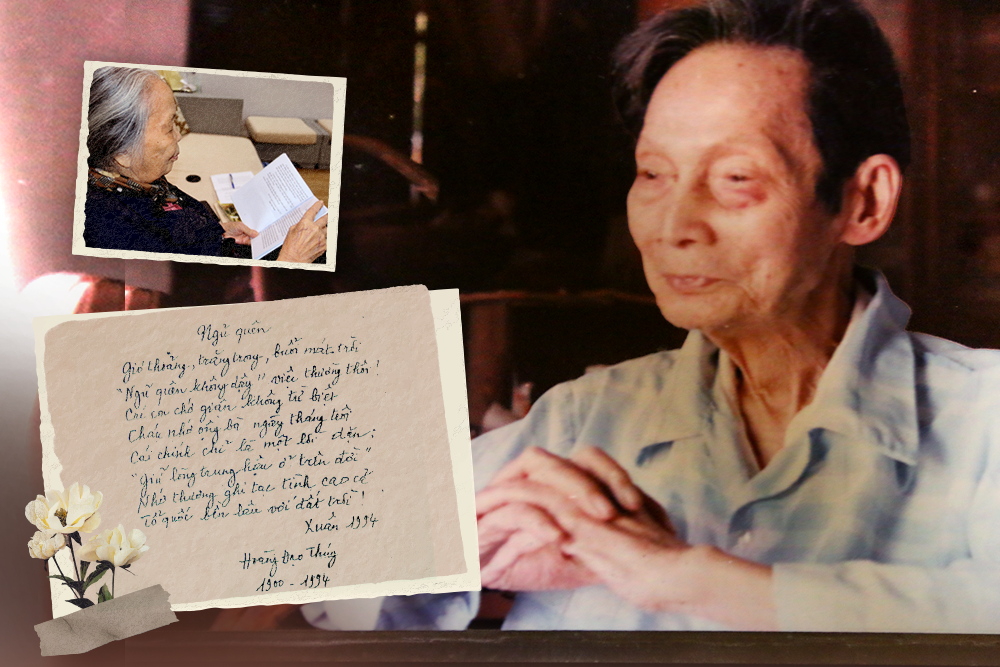 Ngủ quên
Gió thoảng, trăng trong, buổi mát trời
"Ngủ quên không dậy" viếu thương thôi!
Con con chớ giận không từ biệt
Cháu nhớ ông bà ngày tháng trôi
Cái chính chỉ là một lời dặn:
"Giữ lòng trung hậu ở trên đời"
Nhớ thương ghi tạc tình cao cả
Tổ quốc bền lâu với đất trời!
Xuân 1994
Hoàng Đạo Thúy
1900 - 1994